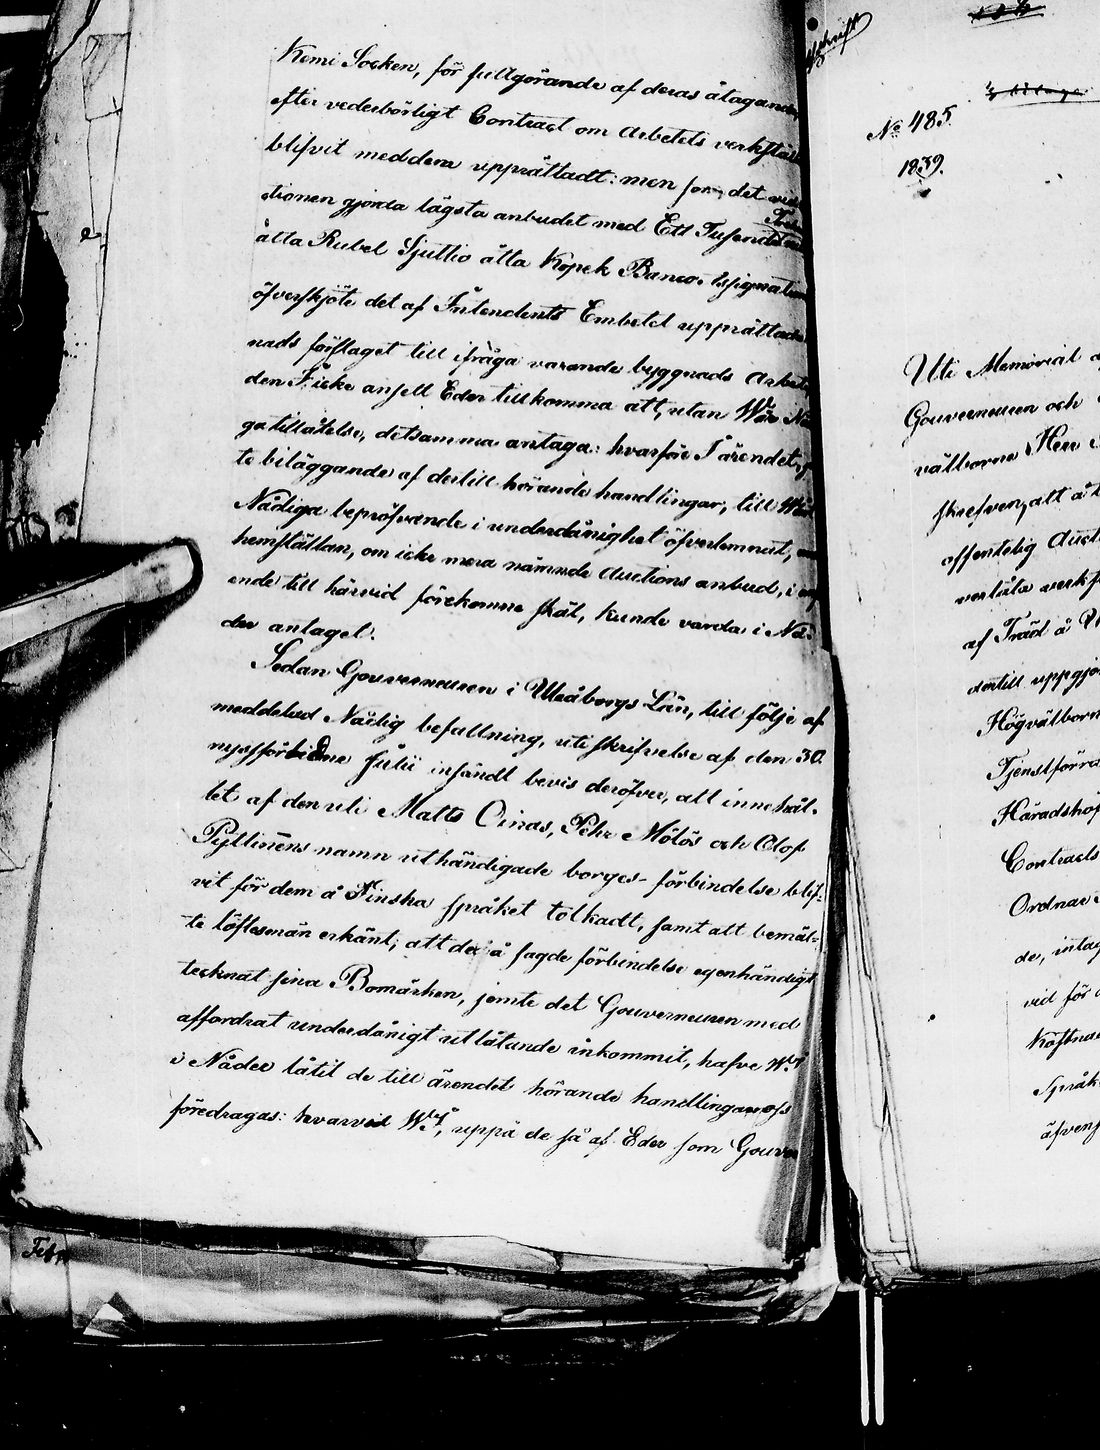 Kemi Socken, för fullgörande af deras åtaganden
efter vederbörligt Contract om Arbetets verkstäl
blifvit meddem upprättadt: men som det vid
ctionen gjorda lägsta anbudet med Ett Tusende
åtta Rubel Sjuttio åtta Kopek Banco Assignation
öfverskjöte det af Intendents Embetet upprättade
nads förslaget till ifråga varande byggnads Arbet
den I icke ansett Eder tillkomma att, utan Wår Nå
ga tillåtelse, detsamma antaga: hvarföre I ärendet,
te biläggande af dertill hörande handlingar, till Wår
Nådiga bepröfvande i underdånighet öfverlemnat,
hemställan, om icke mera nämnde Auctions anbud, i
ende till härvid förekomne skäl, kunde varda i Nå-
der antaget.
Sedan Gouverneuren i Uleåborgs Län, till följe af
meddelad Nådig befallning, uti skrifvelse af den 30.
nyssförledne Julii insändt bevis deröfver, att innehål-
let af den uti Matts Oinas, Pehr Mölös och Olof
Pyttinens namn uthändigade borges-förbindelse blif-
vit för dem å Finska språket tolkadt, samt att bemäl-
te löftesmän erkänt, att de å sagde förbindelse egenhändigt
tecknat sina Bomärken, jemte det Gouverneuren med
affordrat underdånigt utlåtande inkommit, hafve Wi
i Nåder låtit de till ärendet hörande handlingar oss
föredragas: hvarvid Wi, uppå de så af Eder som Gouver
Afskrift
No 485.
1839.
Uti Memorial
Gouverneuren och
välborne Herr
skrefven, att å
offentelig Auct
verläta verkst
af Träd å
dertill uppgjo
Högvälborn
Tjenstförrä
Häradshöf
Contracts
Ordnar
de, intag
vid för
Kostnad
Språk
äfvens